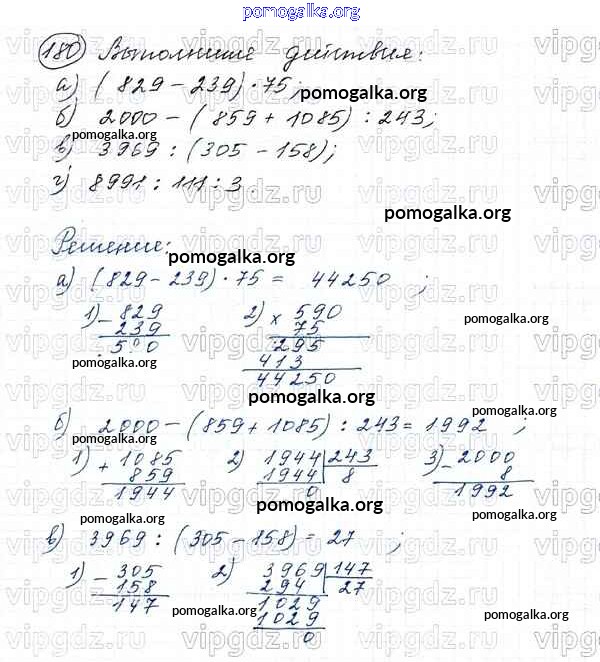 pomogalka.org
180 Выполните действия:
а) (829 – 239) · 75;
pomogalka.org
б) 2000 – (859 + 1085) : 243;
pomogalka.org
в) 3969 : (305 – 158);
pomogalka.org
г) 8991 : 111 : 3.
pomogalka.org
Решение:
pomogalka.org
а) (829 – 239) · 75 = 44250 ;
1) – 829 2) × 590
239 75
590 295
pomogalka.org
413
pomogalka.org
44250
pomogalka.org
pomogalka.org
б) 2000 – (859 + 1085) : 243 = 1992 ;
pomogalka.org
1) + 1085 2) 1944 243 3) – 2000
859 1944 8 8
1944 0 1992
pomogalka.org
pomogalka.org
pomogalka.org
в) 3969 : (305 – 158) = 27 ;
pomogalka.org
1) – 305 2) 3969 147
158 294 27
147 1029
pomogalka.org
1029
pomogalka.org
0
vipgdz.ru